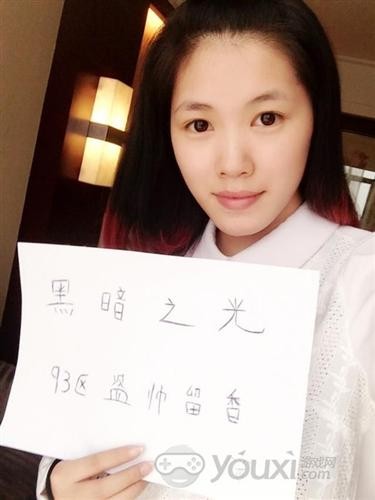 黑暗之光
93区盗帅留香
youxi.com
游戏网